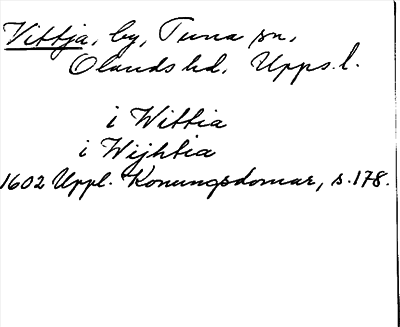 Vittja, by, Tuna sn,
Olands hd, Upps. l.
i Wittia
i Wijhtia
1602 Uppl. Konungsdomar, s. 178.